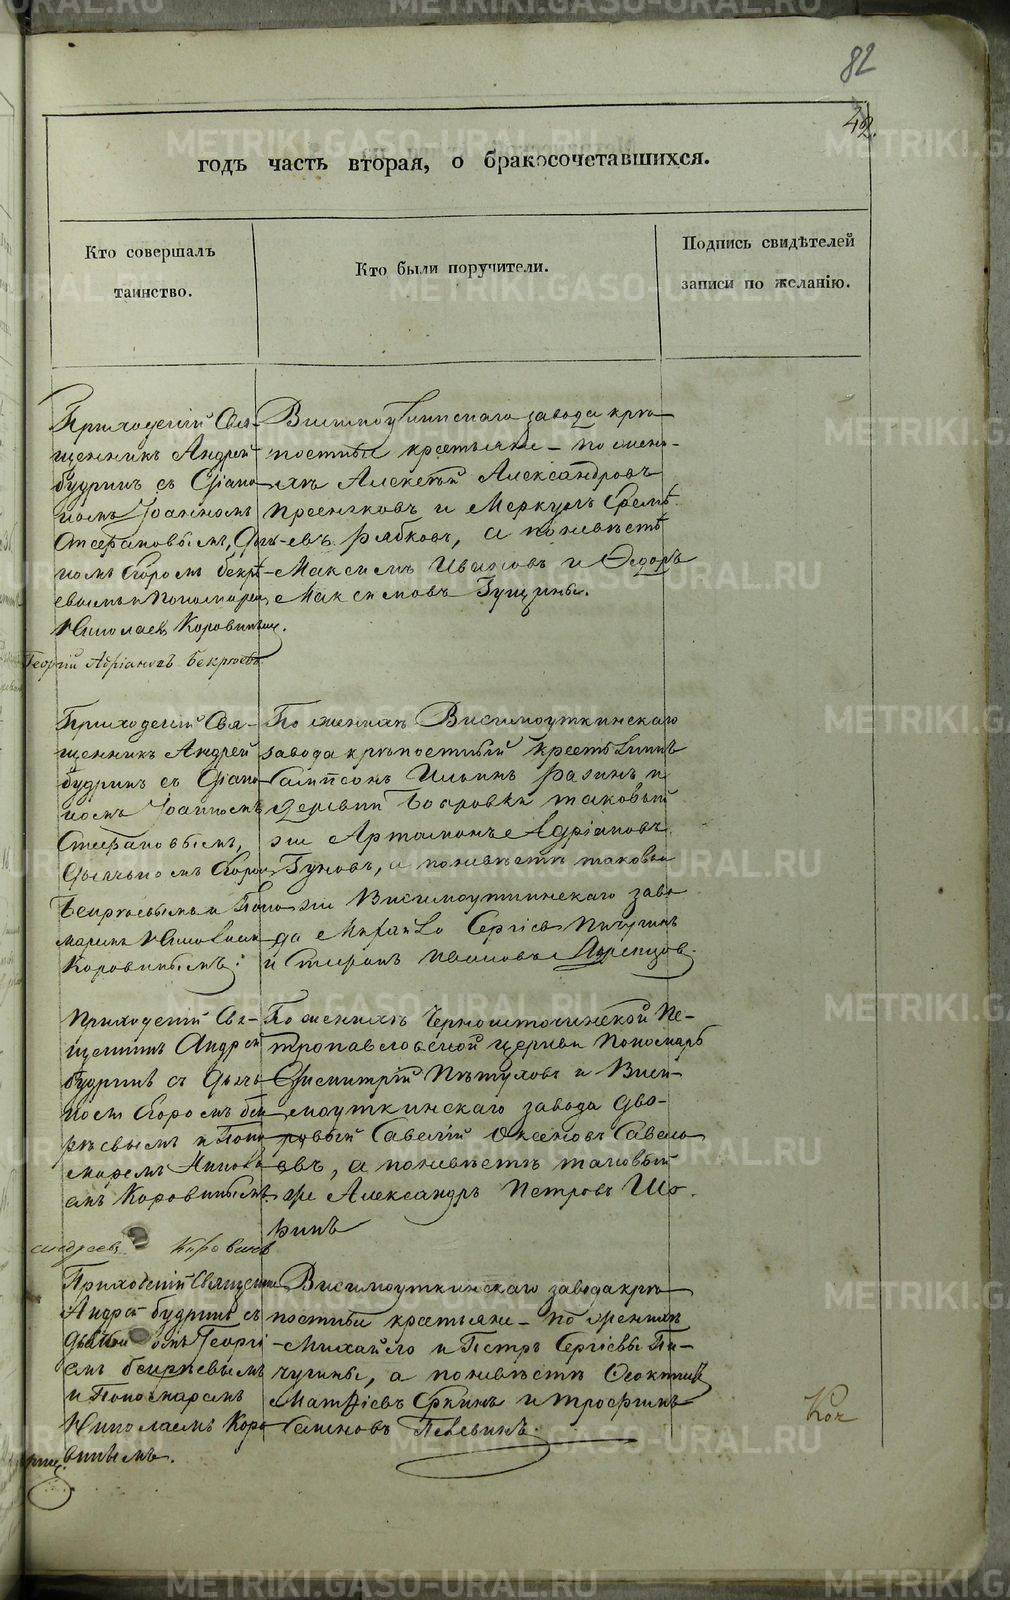 82
42.
годъ часть вторая, о бракосочетавшихся.
Кто совершалъ
таинство.
Кто были поручители.
Подпись свидѣтелей
записи по желанію.
Приходскій Свя-
щенникъ Андрей
Будринъ съ Діако-
номъ Іоанномъ
Стефановымъ, Дья-
комъ Егоромъ Бекрѣ-
евымъ и Пономарем
Николаем Коровиным.
Георгій Адріановъ Бекрюевъ
Висимоуткинскаго завода крѣ-
постные крестьяне – по жени-
хѣ Алексѣй Александровъ
и Меркулъ Еремѣ-
евъ Рябковъ, а по невѣстѣ
Максимъ Ивановъ и Ѳедоръ
Максимовъ Гущины.
Приходскій Свя-
щенникъ Андрей
Будринъ съ Діако-
номъ Іоанномъ
Стефановымъ,
Дьячкомъ Егором
Бекрѣевымъ и Поно-
маремъ Николаем
Коровинымъ.
По женихѣ Висимоуткинскаго
завода крѣпостный крестьянинъ
Сампсонъ Ильинъ Разинъ и
деревни Бобровки таковый
же Артамонъ Адріановъ
Гуновъ, а по невѣстѣ таковые
же Висимоуткинскаго заво-
да Михайло Сергіев Пичугинъ
и Стефанъ Ивановъ
Приходскій Свя-
щенникъ Андрей
Будринъ съ Дьяч-
комъ Егоромъ Бек-
рѣевымъ и Поно-
маремъ Никола-
емъ Коровинымъ.
Андреевъ Коровинъ
По женихѣ Черноисточинской Пе-
тропавловской церкви Пономарь
Димитрій Пѣтуховъ и Виси-
моуткинскаго завода дво-
ровый Савелій Оксеновъ Савель-
евъ, а по невѣстѣ таковый
же Александръ Петровъ Шо-
ринъ
Приходскій Священни
Андрей Будринъ съ
Георгі-
емъ Бекрѣевымъ
и Пономаремъ
Николаемъ Коро-
винымъ.
Висимоуткинскаго завода крѣ-
постные крестьяне – по женихѣ
Михайло и Петръ Сергіевы Пи-
чугины, а по невѣстѣ Ѳеоктист
Матѳіевъ и Трофимъ
Семеновъ Пѣвевинъ.
METRIKI.GASO-URAL.RU